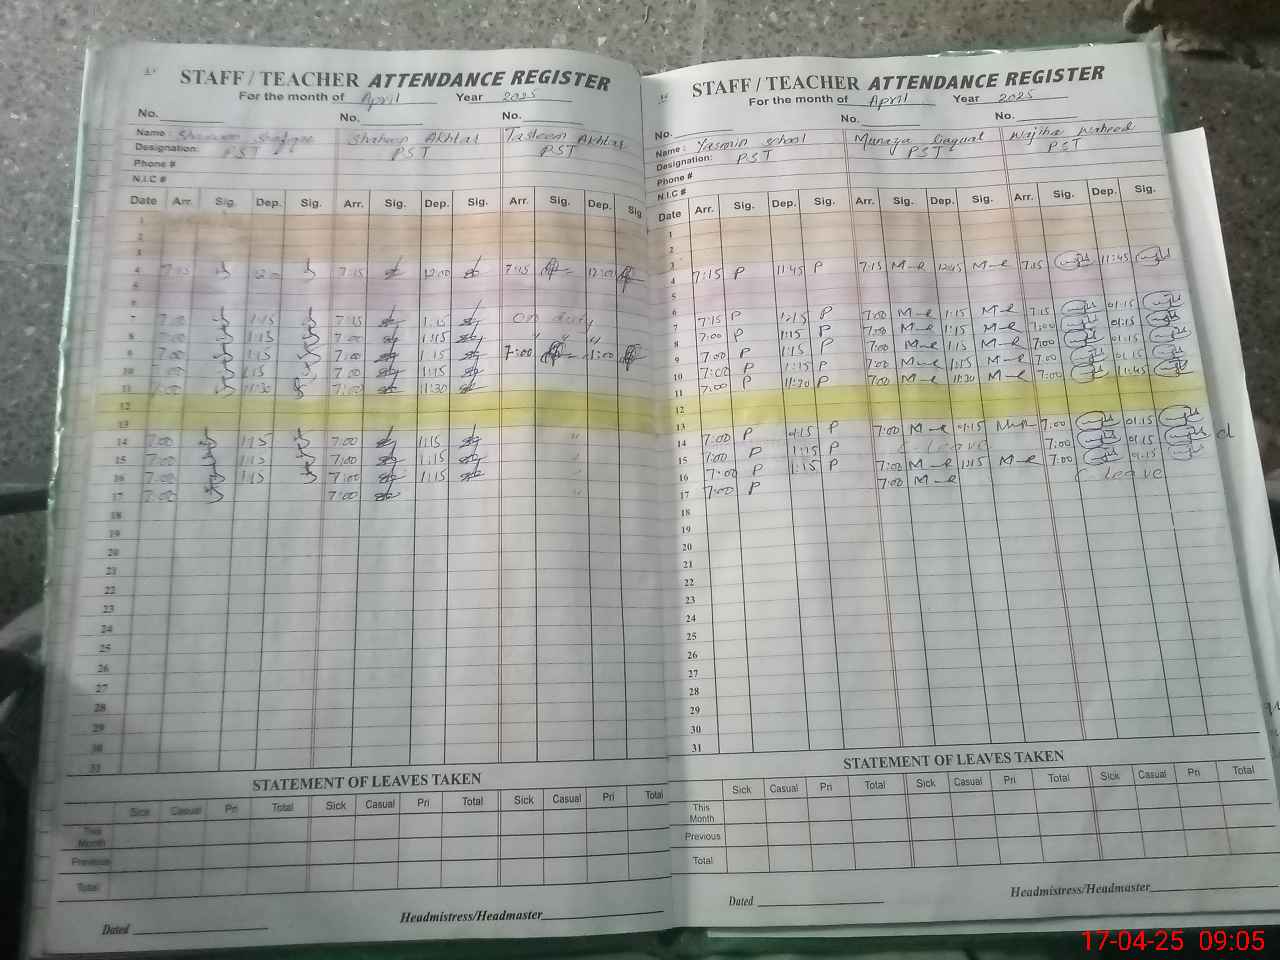 STAFF / TEACHER ATTENDANCE REGISTER
For the month of April Year 2025
No. No. No.
Name : Shaheen Akhtar Tasleem Akhtar
Designation: PST PST PST
Phone #
N.I.C #
Date Arr. Sig. Dep. Sig. Arr. Sig. Dep. Sig. Arr. Sig. Dep. Sig.
1
2
3
4 7:15 12:00 7:15 12:00 7:15 12:00
5
6
7 7:00 1:15 7:15 1:15 On duty
8 7:00 1:15 7:00 1:15 " "
9 7:00 1:15 7:00 1:15 7:00 1:00
10 7:00 1:15 7:00 1:15
11 7:00 11:30 7:00 11:30
12
13
14 7:00 1:15 7:00 1:15 "
15 7:00 1:15 7:00 1:15
16 7:00 1:15 7:00 1:15
17 7:00 7:00 "
18
19
20
21
22
23
24
25
26
27
28
29
30
31
STATEMENT OF LEAVES TAKEN
Sick Casual Pri Total Sick Casual Pri Total Sick Casual Pri Total
This Month
Previous
Total
Dated Headmistress/Headmaster
STAFF / TEACHER ATTENDANCE REGISTER
For the month of April Year 2025
No. No. No.
Name : Yasmin Wajiha Waheed
Designation: PST PST PST
Phone #
N.I.C #
Date Arr. Sig. Dep. Sig. Arr. Sig. Dep. Sig. Arr. Sig. Dep. Sig.
1
2
3
4 7:15 P 11:45 P 7:15 M-e 12:45 M-e 7:15 11:45
5
6
7 7:15 P 1:15 P 7:00 M-e 1:15 M-e 7:15 01:15
8 7:00 P 1:15 P 7:00 M-e 1:15 M-e 7:00 01:15
9 7:00 P 1:15 P 7:00 M-e 1:15 M-e 7:00 01:15
10 7:00 P 1:15 P 7:00 M-e 1:15 M-e 7:00 01:15
11 7:00 P 11:20 P 7:00 M-e 11:30 M-e 7:00 11:45
12
13
14 7:00 P P 7:00 M-e 7:00 01:15
15 7:00 P 1:15 P Leave 7:00 01:15
16 7:00 P 1:15 P 7:00 M-e 1:15 M-e 7:00 01:15
17 7:00 P 7:00 M-e Leave
18
19
20
21
22
23
24
25
26
27
28
29
30
31
STATEMENT OF LEAVES TAKEN
Sick Casual Pri Total Sick Casual Pri Total Sick Casual Pri Total
This Month
Previous
Total
Dated Headmistress/Headmaster
17-04-25 09:05